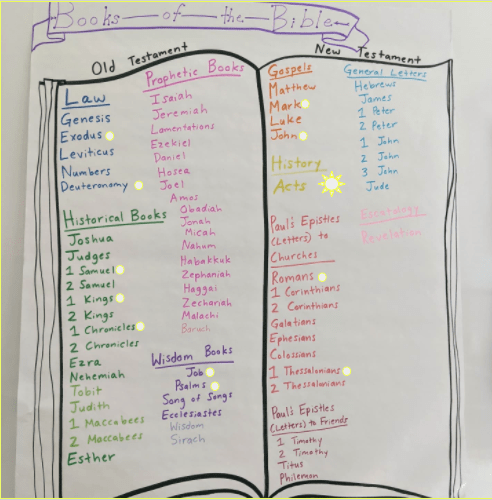 Books of the Bible
Old Testament
Law
Genesis
Exodus
Leviticus
Numbers
Deuteronomy
Historical Books
Joshua
Judges
1 Samuel
2 Samuel
1 Kings
2 Kings
1 Chronicles
2 Chronicles
Ezra
Nehemiah
Tobit
Judith
1 Maccabees
2 Maccabees
Esther
Prophetic Books
Isaiah
Jeremiah
Lamentations
Ezekiel
Daniel
Hosea
Joel
Amos
Obadiah
Jonah
Micah
Nahum
Habakkuk
Zephaniah
Haggai
Zechariah
Malachi
Baruch
Wisdom Books
Job
Psalms
Song of Songs
Ecclesiastes
Wisdom
Sirach
New Testament
Gospels
Matthew
Mark
Luke
John
History
Acts
Paul's Epistles
(Letters) to
Churches
Romans
1 Corinthians
2 Corinthians
Galatians
Ephesians
Colossians
1 Thessalonians
2 Thessalonians
Paul's Epistles
(Letters) to Friends
1 Timothy
2 Timothy
Titus
Philemon
General Letters
Hebrews
James
1 Peter
2 Peter
1 John
2 John
3 John
Jude
Revelation